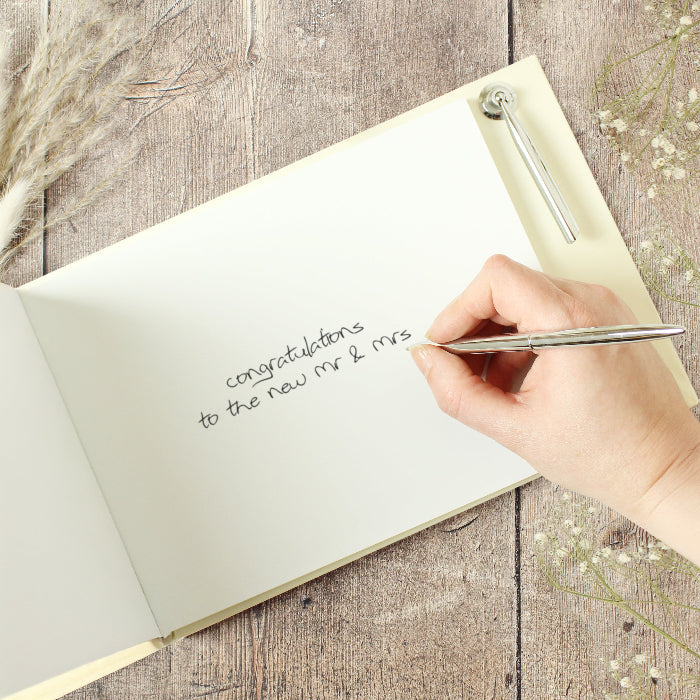 congratulations
to the new mr & mrs